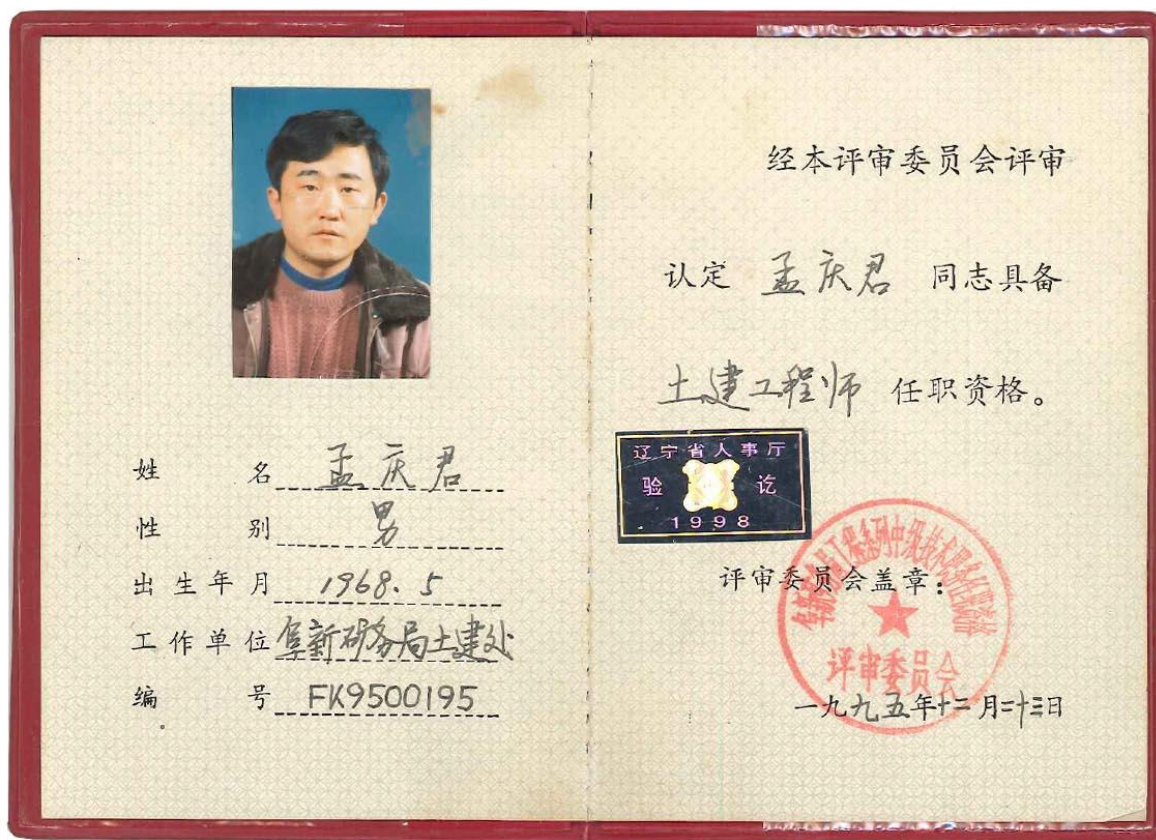 姓名 孟庆君
性别 男
出生年月 1968.5
工作单位 阜新矿务局土建处
编号 FK9500195
经本评审委员会评审
认定 孟庆君 同志具备
土建工程师 任职资格。
辽宁省人事厅
验 讫
1998
评审委员会盖章：
阜新矿务局工程系列中级技术职务任职资格
评审委员会
一九九五年十二月二十三日